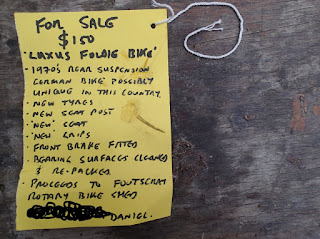 FOR SALE
$150
'LUXUS FOLDIE BIKE'
- 1970'S REAR SUSPENSION
GERMAN BIKE POSSIBLY
UNIQUE IN THIS COUNTRY.
- NEW TYRES
- NEW SEAT POST
- 'NEW' SEAT
- 'NEW' GRIPS
- FRONT BRAKE FITTED
- BEARING SURFACES CLEANED
& RE-PACKED.
- PROCEEDS TO FOOTSCRAY
ROTARY BIKE SHED
DANIEL.